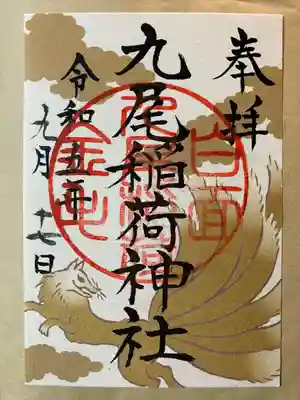 奉拝
九尾稲荷神社
令和五年
九月十七日